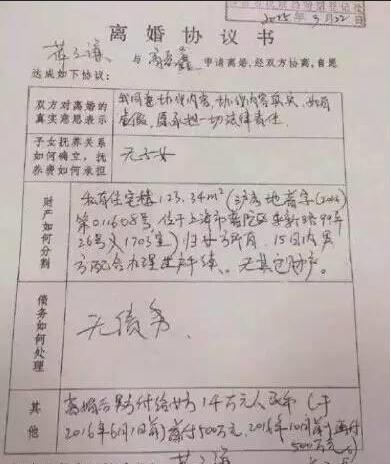 2015年9月22日
离婚协议书
与 申请离婚,经双方协商,自愿
达成如下协议:
双方对离婚的
真实意思表示
我同意协议内容,协议内容真实,如有
虚假,愿承担一切法律责任.
子女抚养关系
如何确立,抚
养费如何承担
无子女
财产如何分割
私有住宅楼123.34m²(沪房地普字(2012)
第011608号,位于上海市普陀区 99弄
26号 1703室)归女方所有,15日内男
方配合办理过户手续。无其它财产。
债务如何处理
无债务.
其他
离婚后男方付给女方1千万元人民币(于
2016年6月1日前首付500万元,2016年10月前再付
500万元)